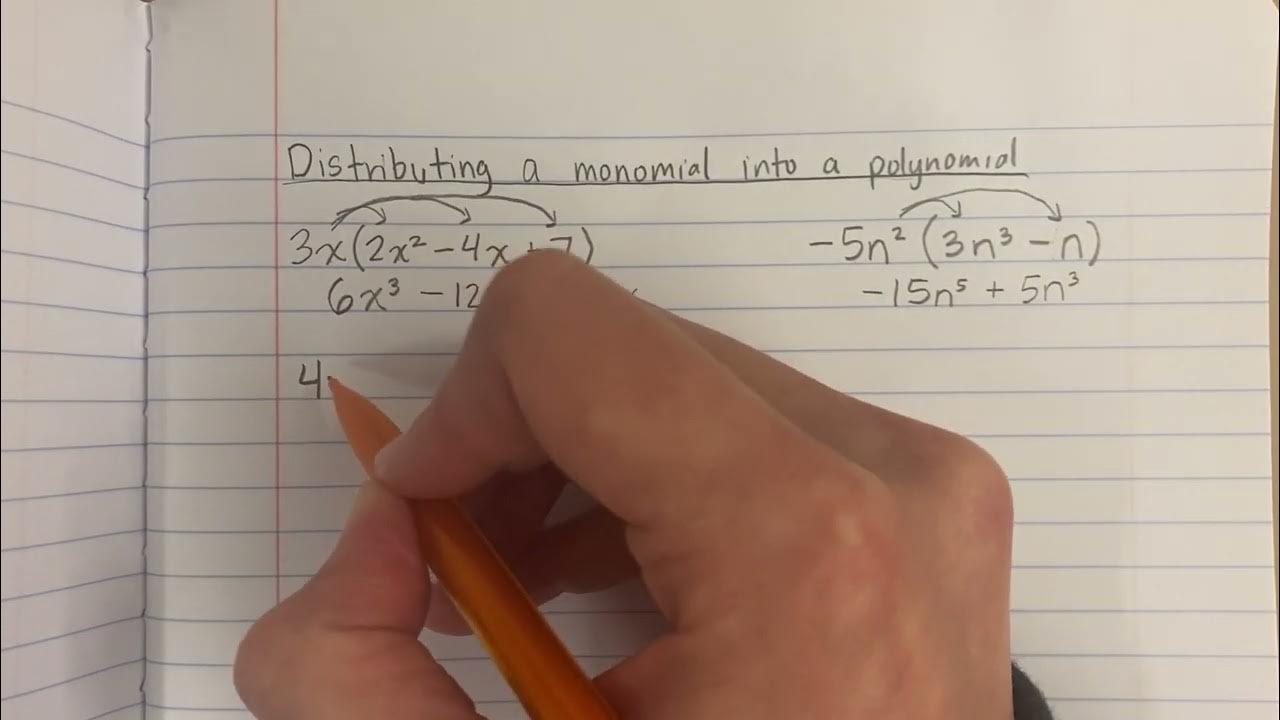 Distributing a monomial into a polynomial
3x(2x² - 4x + 7)
6x³ - 12
-5n² (3n³ - n)
-15n⁵ + 5n³
4